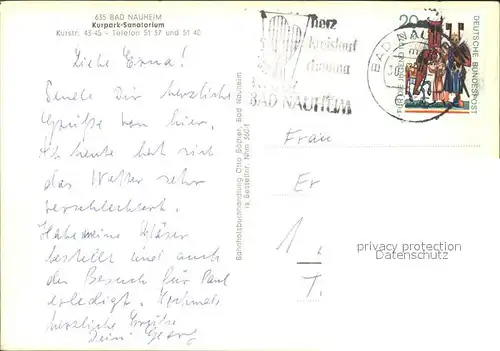 635 BAD NAUHEIM
Kurpark-Sanatorium
Kurstr. 43-45 - Telefon 51 57 und 51 40
Liebe Erna!
Sende Dir herzliche
Grüße von hier.
heute hat sich
das Wetter sehr
verschlechtert.
Habe meine Gläser
bestellt und auch
den Besuch für Paul
erledigt. Nochmals
herzliche Grüße
Dein Georg
Bahnhofsbuchhandlung Otto Böcher, Bad Nauheim
Bestellnr. Nhm 360/1
Herz
Kreislauf
Rheuma
BAD NAUHEIM
BAD NAU
20
DEUTSCHE BUNDESPOST
FÜR DIE JUGEND
Frau
Er
1
T.
privacy protection
oldthing.de